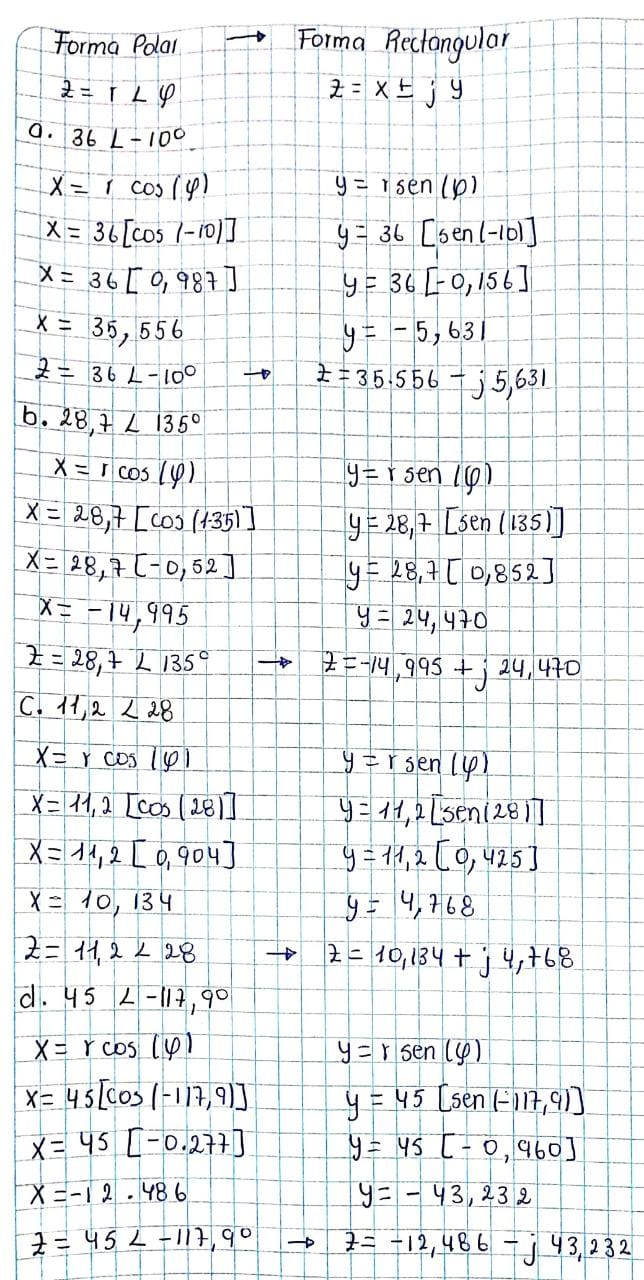 Forma Polar → Forma Rectangular
z = r ∠ φ z = x ± j y
a. 36 ∠ -10°
x = r cos (φ) y = r sen (φ)
x = 36 [cos (-10)] y = 36 [sen (-10)]
x = 36 [0,987] y = 36 [-0,156]
x = 35,556 y = -5,631
z = 36 ∠ -10° → z = 35.556 - j 5,631
b. 28,7 ∠ 135°
x = r cos (φ) y = r sen (φ)
x = 28,7 [cos (135)] y = 28,7 [sen (135)]
x = 28,7 [-0,52] y = 28,7 [0,852]
x = -14,995 y = 24,470
z = 28,7 ∠ 135° → z = -14,995 + j 24,470
C. 11,2 ∠ 28
x = r cos (φ) y = r sen (φ)
x = 11,2 [cos (28)] y = 11,2 [sen (28)]
x = 11,2 [0,904] y = 11,2 [0,425]
x = 10,134 y = 4,768
z = 11,2 ∠ 28 → z = 10,134 + j 4,768
d. 45 ∠ -117,9°
x = r cos (φ) y = r sen (φ)
x = 45 [cos (-117,9)] y = 45 [sen (-117,9)]
x = 45 [-0.277] y = 45 [-0,960]
x = -12.486 y = -43,232
z = 45 ∠ -117,9° → z = -12,486 - j 43,232